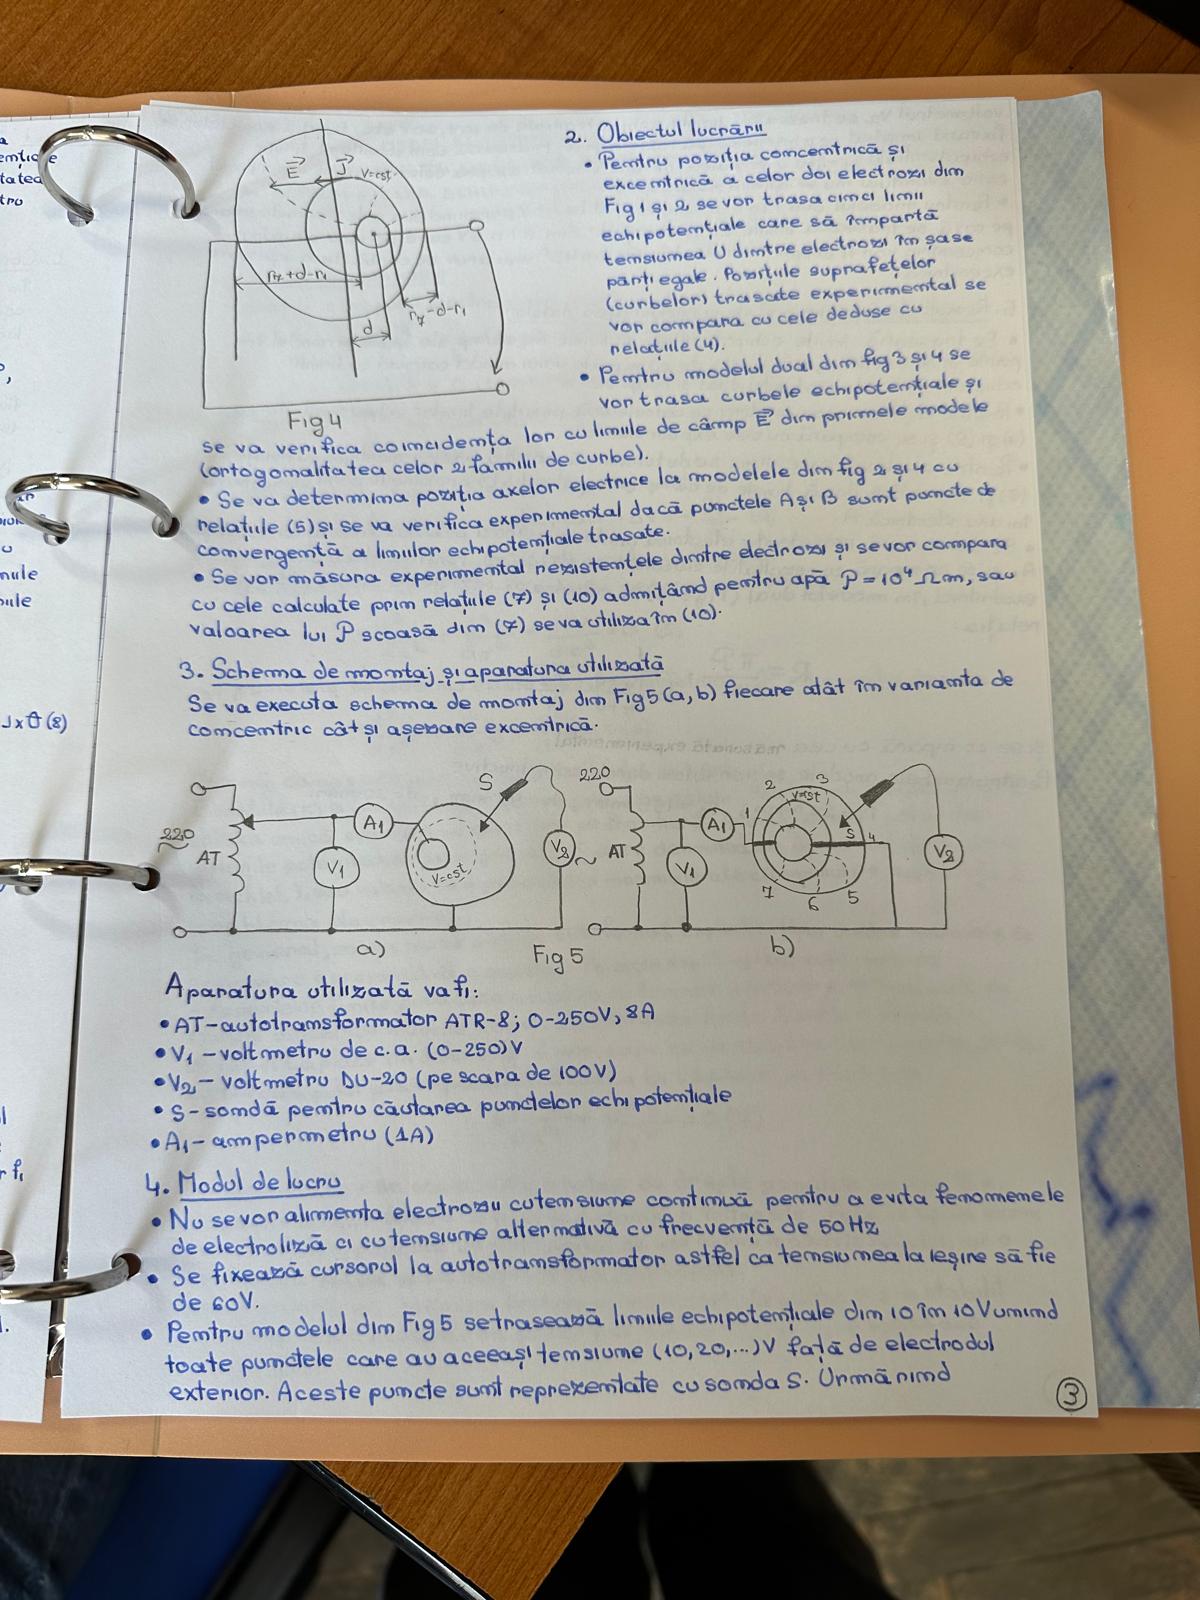 E J V=cst
r2+d-r1
r2-d-r1
d
Fig 4
2. Obiectul lucrării
• Pentru poziția concentrică și
excentrică a celor doi electrozi din
Fig 1 și 2 se vor trasa cinci linii
echipotențiale care să împartă
tensiunea U dintre electrozi în șase
părți egale. Pozițiile suprafețelor
(curbelor) trasate experimental se
vor compara cu cele deduse cu
relațiile (4).
• Pentru modelul dual din fig 3 și 4 se
vor trasa curbele echipotențiale și
se va verifica coincidența lor cu liniile de câmp E din primele modele
(ortogonalitatea celor 2 familii de curbe).
• Se va determina poziția axelor electrice la modelele din fig 2 și 4 cu
relațiile (5) și se va verifica experimental dacă punctele A și B sunt puncte de
convergență a liniilor echipotențiale trasate.
• Se vor măsura experimental rezistențele dintre electrozi și se vor compara
cu cele calculate prin relațiile (7) și (10) admițând pentru apă ρ = 10⁴ Ωm, sau
valoarea lui ρ scoasă din (7) se va utiliza în (10).
3. Schema de montaj și aparatura utilizată
Se va executa schema de montaj din Fig 5 (a, b) fiecare atât în varianta de
concentric cât și așezare excentrică.
220 ~ AT V1 A1 V=cst S V2
a)
Fig 5
220 ~ AT V1 A1 1 2 3 V=cst S 4 5 6 7 V2
b)
Aparatura utilizată va fi:
• AT-autotransformator ATR-8; 0-250V, 8A
• V1 - voltmetru de c.a. (0-250)V
• V2 - voltmetru DU-20 (pe scara de 100V)
• S-sondă pentru căutarea punctelor echipotențiale
• A1- ampermetru (1A)
4. Modul de lucru
• Nu se vor alimenta electrozii cu tensiune continuă pentru a evita fenomenele
de electroliză ci cu tensiune alternativă cu frecvență de 50 Hz
• Se fixează cursorul la autotransformator astfel ca tensiunea la ieșire să fie
de 60V.
• Pentru modelul din Fig 5 se trasează liniile echipotențiale din 10 în 10 V unind
toate punctele care au aceeași tensiune (10, 20, ...) V față de electrodul
exterior. Aceste puncte sunt reprezentate cu sonda S. Urmărind
3
JxU (8)